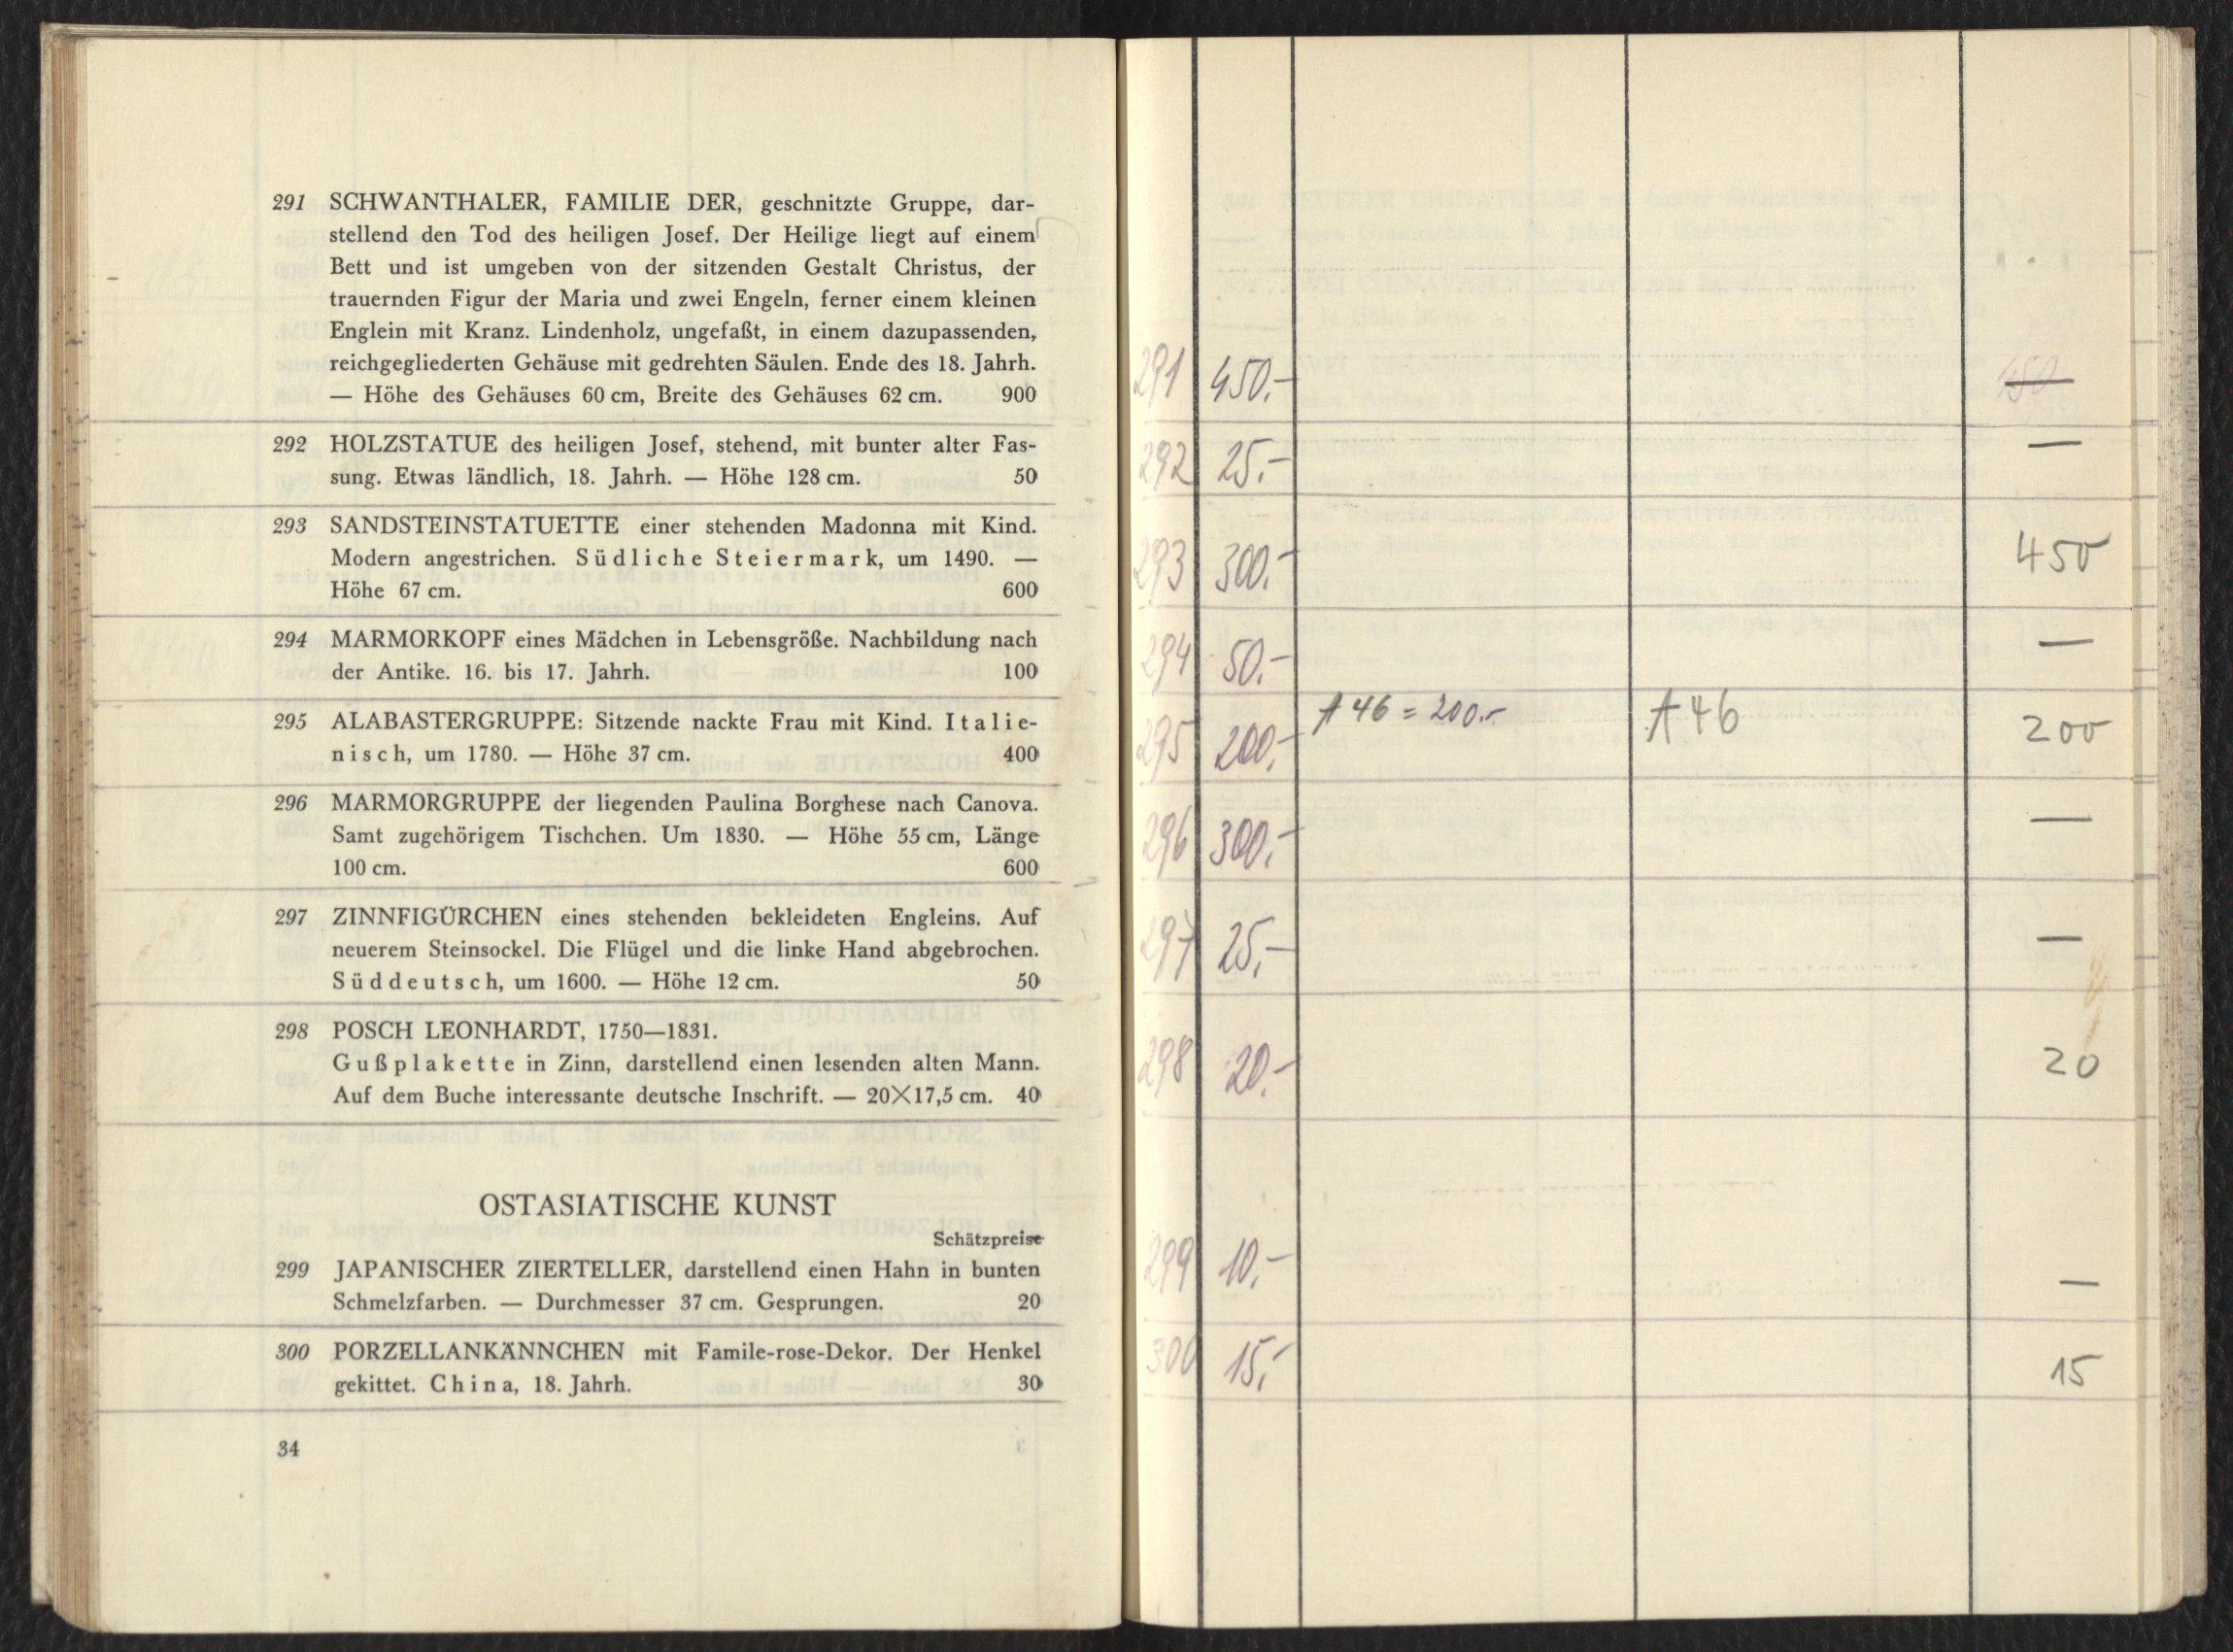 291 SCHWANTHALER, FAMILIE DER, geschnitzte Gruppe, dar-
stellend den Tod des heiligen Josef. Der Heilige liegt auf einem
Bett und ist umgeben von der sitzenden Gestalt Christus, der
trauernden Figur der Maria und zwei Engeln, ferner einem kleinen
Englein mit Kranz. Lindenholz, ungefaßt, in einem dazupassenden,
reichgegliederten Gehäuse mit gedrehten Säulen. Ende des 18. Jahrh.
— Höhe des Gehäuses 60 cm, Breite des Gehäuses 62 cm. 900
292 HOLZSTATUE des heiligen Josef, stehend, mit bunter alter Fas-
sung. Etwas ländlich, 18. Jahrh. — Höhe 128 cm. 50
293 SANDSTEINSTATUETTE einer stehenden Madonna mit Kind.
Modern angestrichen. Südliche Steiermark, um 1490. —
Höhe 67 cm. 600
294 MARMORKOPF eines Mädchen in Lebensgröße. Nachbildung nach
der Antike. 16. bis 17. Jahrh. 100
295 ALABASTERGRUPPE: Sitzende nackte Frau mit Kind. Italie-
nisch, um 1780. — Höhe 37 cm. 400
296 MARMORGRUPPE der liegenden Paulina Borghese nach Canova.
Samt zugehörigem Tischchen. Um 1830. — Höhe 55 cm, Länge
100 cm. 600
297 ZINNFIGÜRCHEN eines stehenden bekleideten Engleins. Auf
neuerem Steinsockel. Die Flügel und die linke Hand abgebrochen.
Süddeutsch, um 1600. — Höhe 12 cm. 50
298 POSCH LEONHARDT, 1750—1831.
Gußplakette in Zinn, darstellend einen lesenden alten Mann.
Auf dem Buche interessante deutsche Inschrift. — 20×17,5 cm. 40
OSTASIATISCHE KUNST
Schätzpreise
299 JAPANISCHER ZIERTELLER, darstellend einen Hahn in bunten
Schmelzfarben. — Durchmesser 37 cm. Gesprungen. 20
300 PORZELLANKÄNNCHEN mit Famile-rose-Dekor. Der Henkel
gekittet. China, 18. Jahrh. 30
34
291 450.- 450
292 25.- —
293 300.- 450
294 50.- —
295 200.- A 46 = 200.- A 46 200
296 300.- —
297 25.- —
298 20.- 20
299 10.- —
300 15.- 15